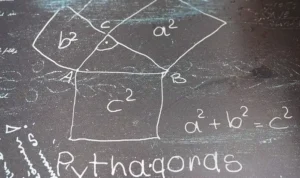 C
b² a²
A B
c²
a² + b² = c²
Pythagoras